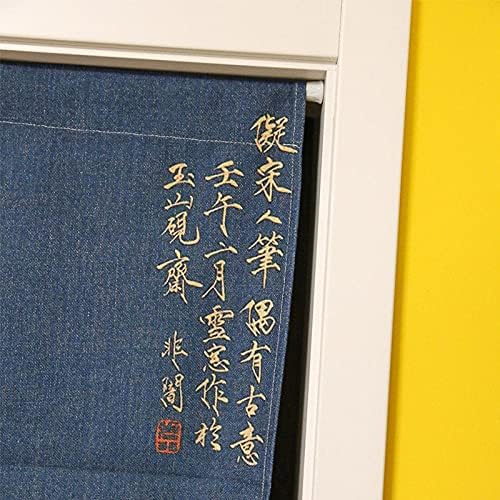 儗宋人筆 偶有古意
壬午二月雪窓作於
玉山硯齋 非闇